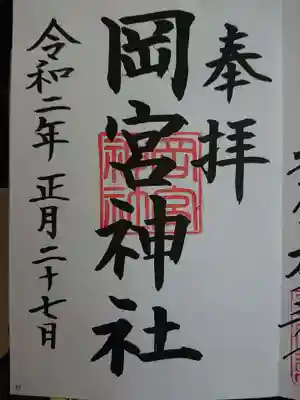 奉拝
岡宮神社
岡宮神社
令和二年 正月二十七日